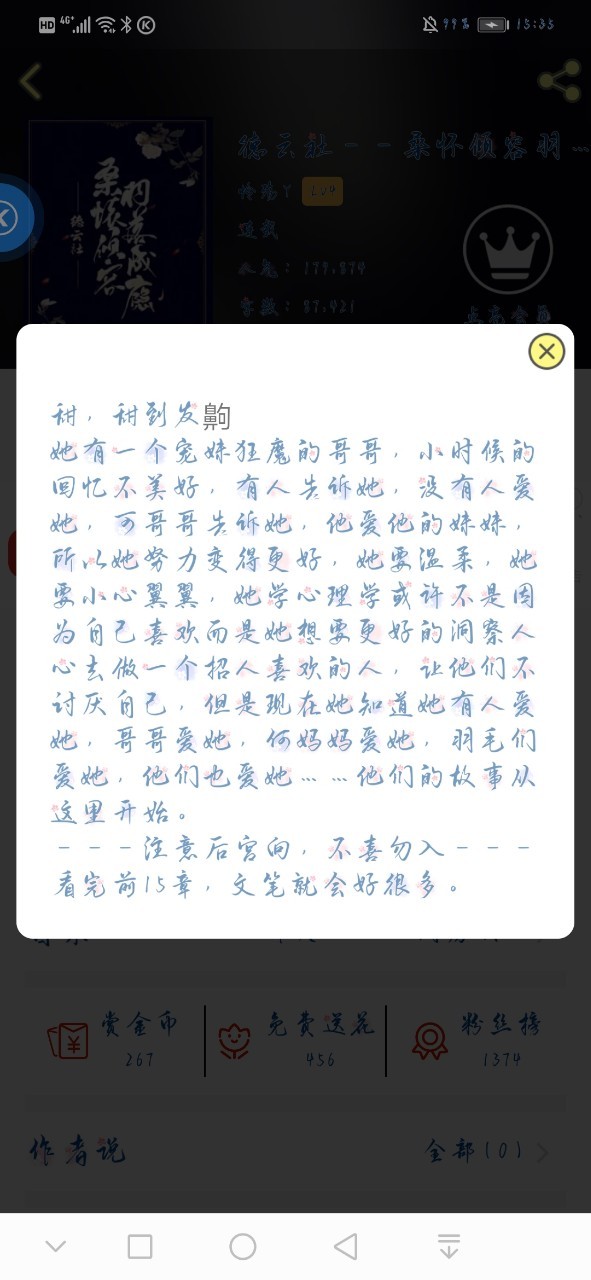 HD 4G+ 99% 15:35
德云社--桑怀倾容羽…
连载
人气：179,879
字数：37,421
甜，甜到发齁
她有一个宠妹狂魔的哥哥，小时候的
回忆不美好，有人告诉她，没有人爱
她，可哥哥告诉她，他爱他的妹妹，
所以她努力变得更好，她要温柔，她
要小心翼翼，她学心理学或许不是因
为自己喜欢而是她想要更好的洞察人
心去做一个招人喜欢的人，让他们不
讨厌自己，但是现在她知道她有人爱
她，哥哥爱她，何妈妈爱她，羽毛们
爱她，他们也爱她……他们的故事从
这里开始。
---注意后宫向，不喜勿入---
看完前15章，文笔就会好很多。
赏金币 免费送花 粉丝榜
267 456 1374
作者说 全部(0)